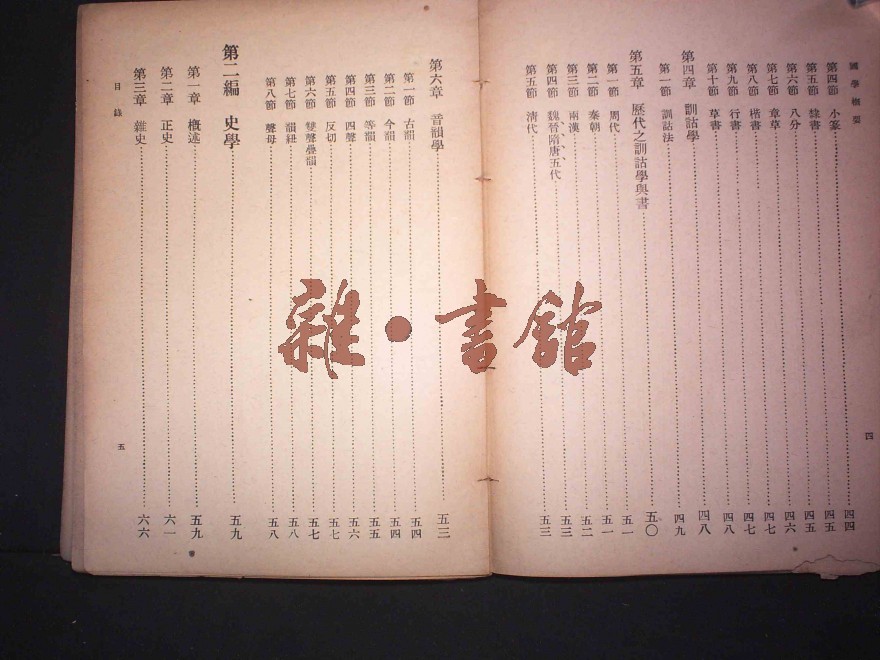 國學概要
第四節　小篆……四四
第五節　隸書……四五
第六節　八分……四六
第七節　章草……四七
第八節　楷書……四七
第九節　行書……四八
第十節　草書……四八
第四章　訓詁學……四八
第一節　訓詁法……四九
第五章　歷代之訓詁學與書……五〇
第一節　周代……五一
第二節　秦朝……五一
第三節　兩漢……五二
第四節　魏、晉、隋、唐、五代……五三
第五節　清代……五三
四
第六章　音韻學……五三
第一節　古韻……五四
第二節　今韻……五四
第三節　等韻……五五
第四節　四聲……五六
第五節　反切……五七
第六節　雙聲疊韻……五七
第七節　韻紐……五八
第八節　聲母……五八
第二編　史學……五九
第一章　概述……五九
第二章　正史……六一
第三章　雜史……六六
目錄
五
雜·書館